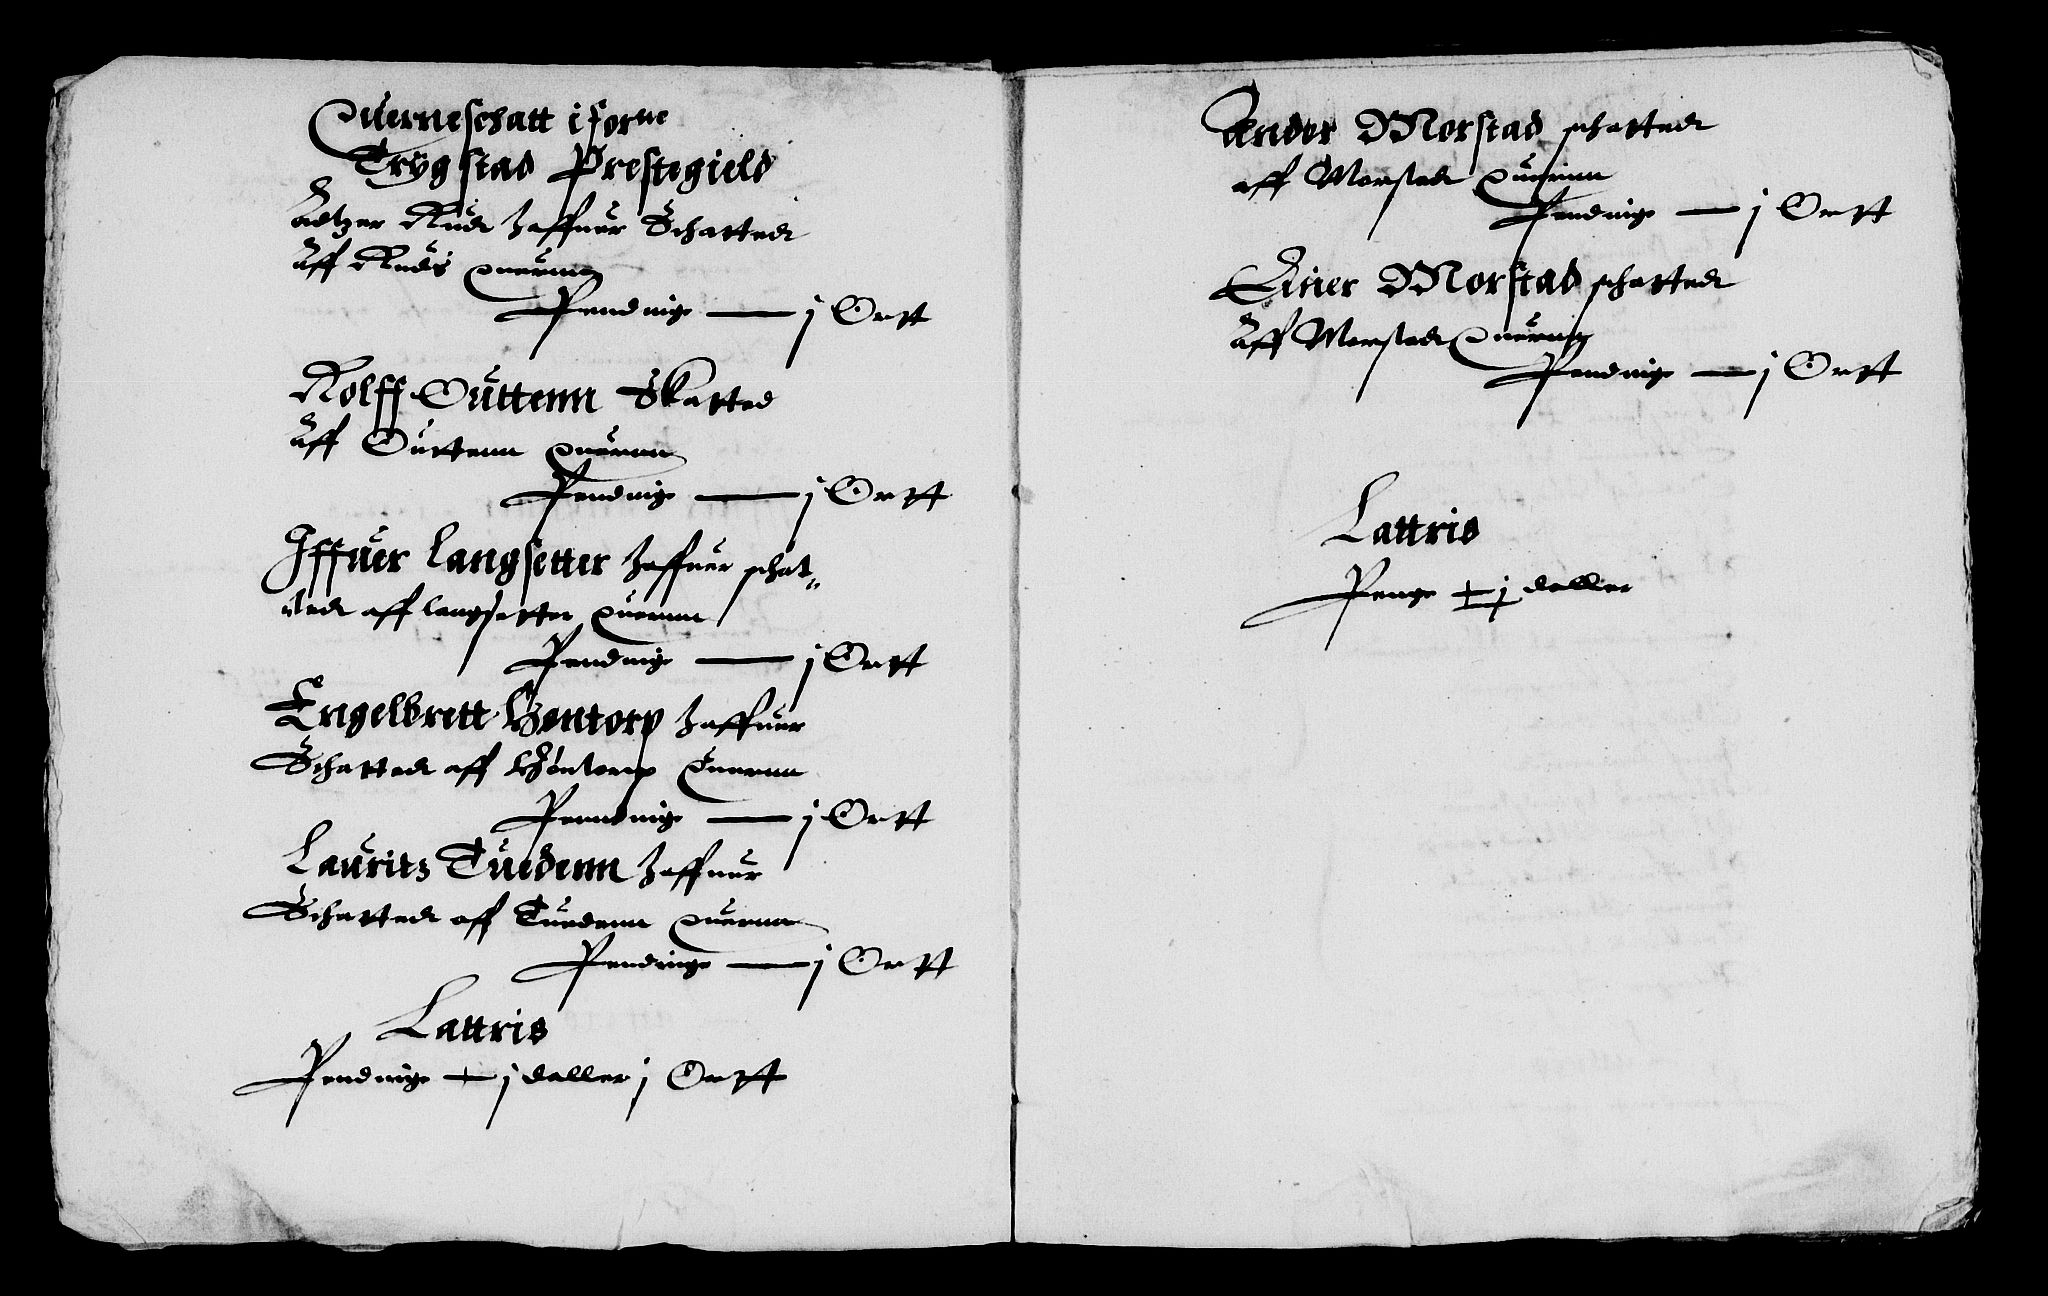 Querneschatt i forne
Trygstad Prestegield
Rudt haffuer Schattedt
Aff Ruds Quernn
Pendnige — j Ortt
Rolff Outtenn Skatted
Aff Outtenn Quernn
Pendnige — j Ortt
Iffuer Langsetter haffuer schat„
tedt aff langsetter Quernn
Pendnige — j Ortt
Engelbrett Gøntorp haffuer
Schattedt aff Gøntorp Quernn
Pendnige — j Ortt
Lauritz Tuedenn haffuer
Schattedt aff Tuedenn Quernn
Pendnige — j Ortt
Lattris
Pendnige — j daller j Ortt
Ander Morstad schattedt
aff Morstadt Quernn
Pendnige — j Ortt
Einer Morstad schattedt
Aff Morstadt Quernn
Pendnige — j Ortt
Lattris
Penge — j daller